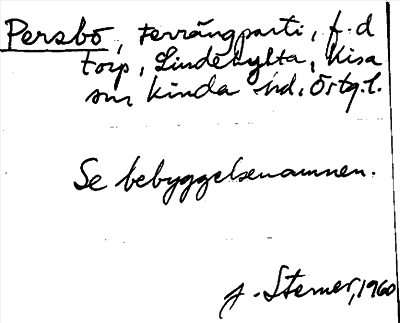 Persbo, terrängparti, f.d
torp, Lindekylta, Kisa
sn, Kinda hd, Östg.l.
Se bebyggelsenamnen.
J. Sterner, 1960